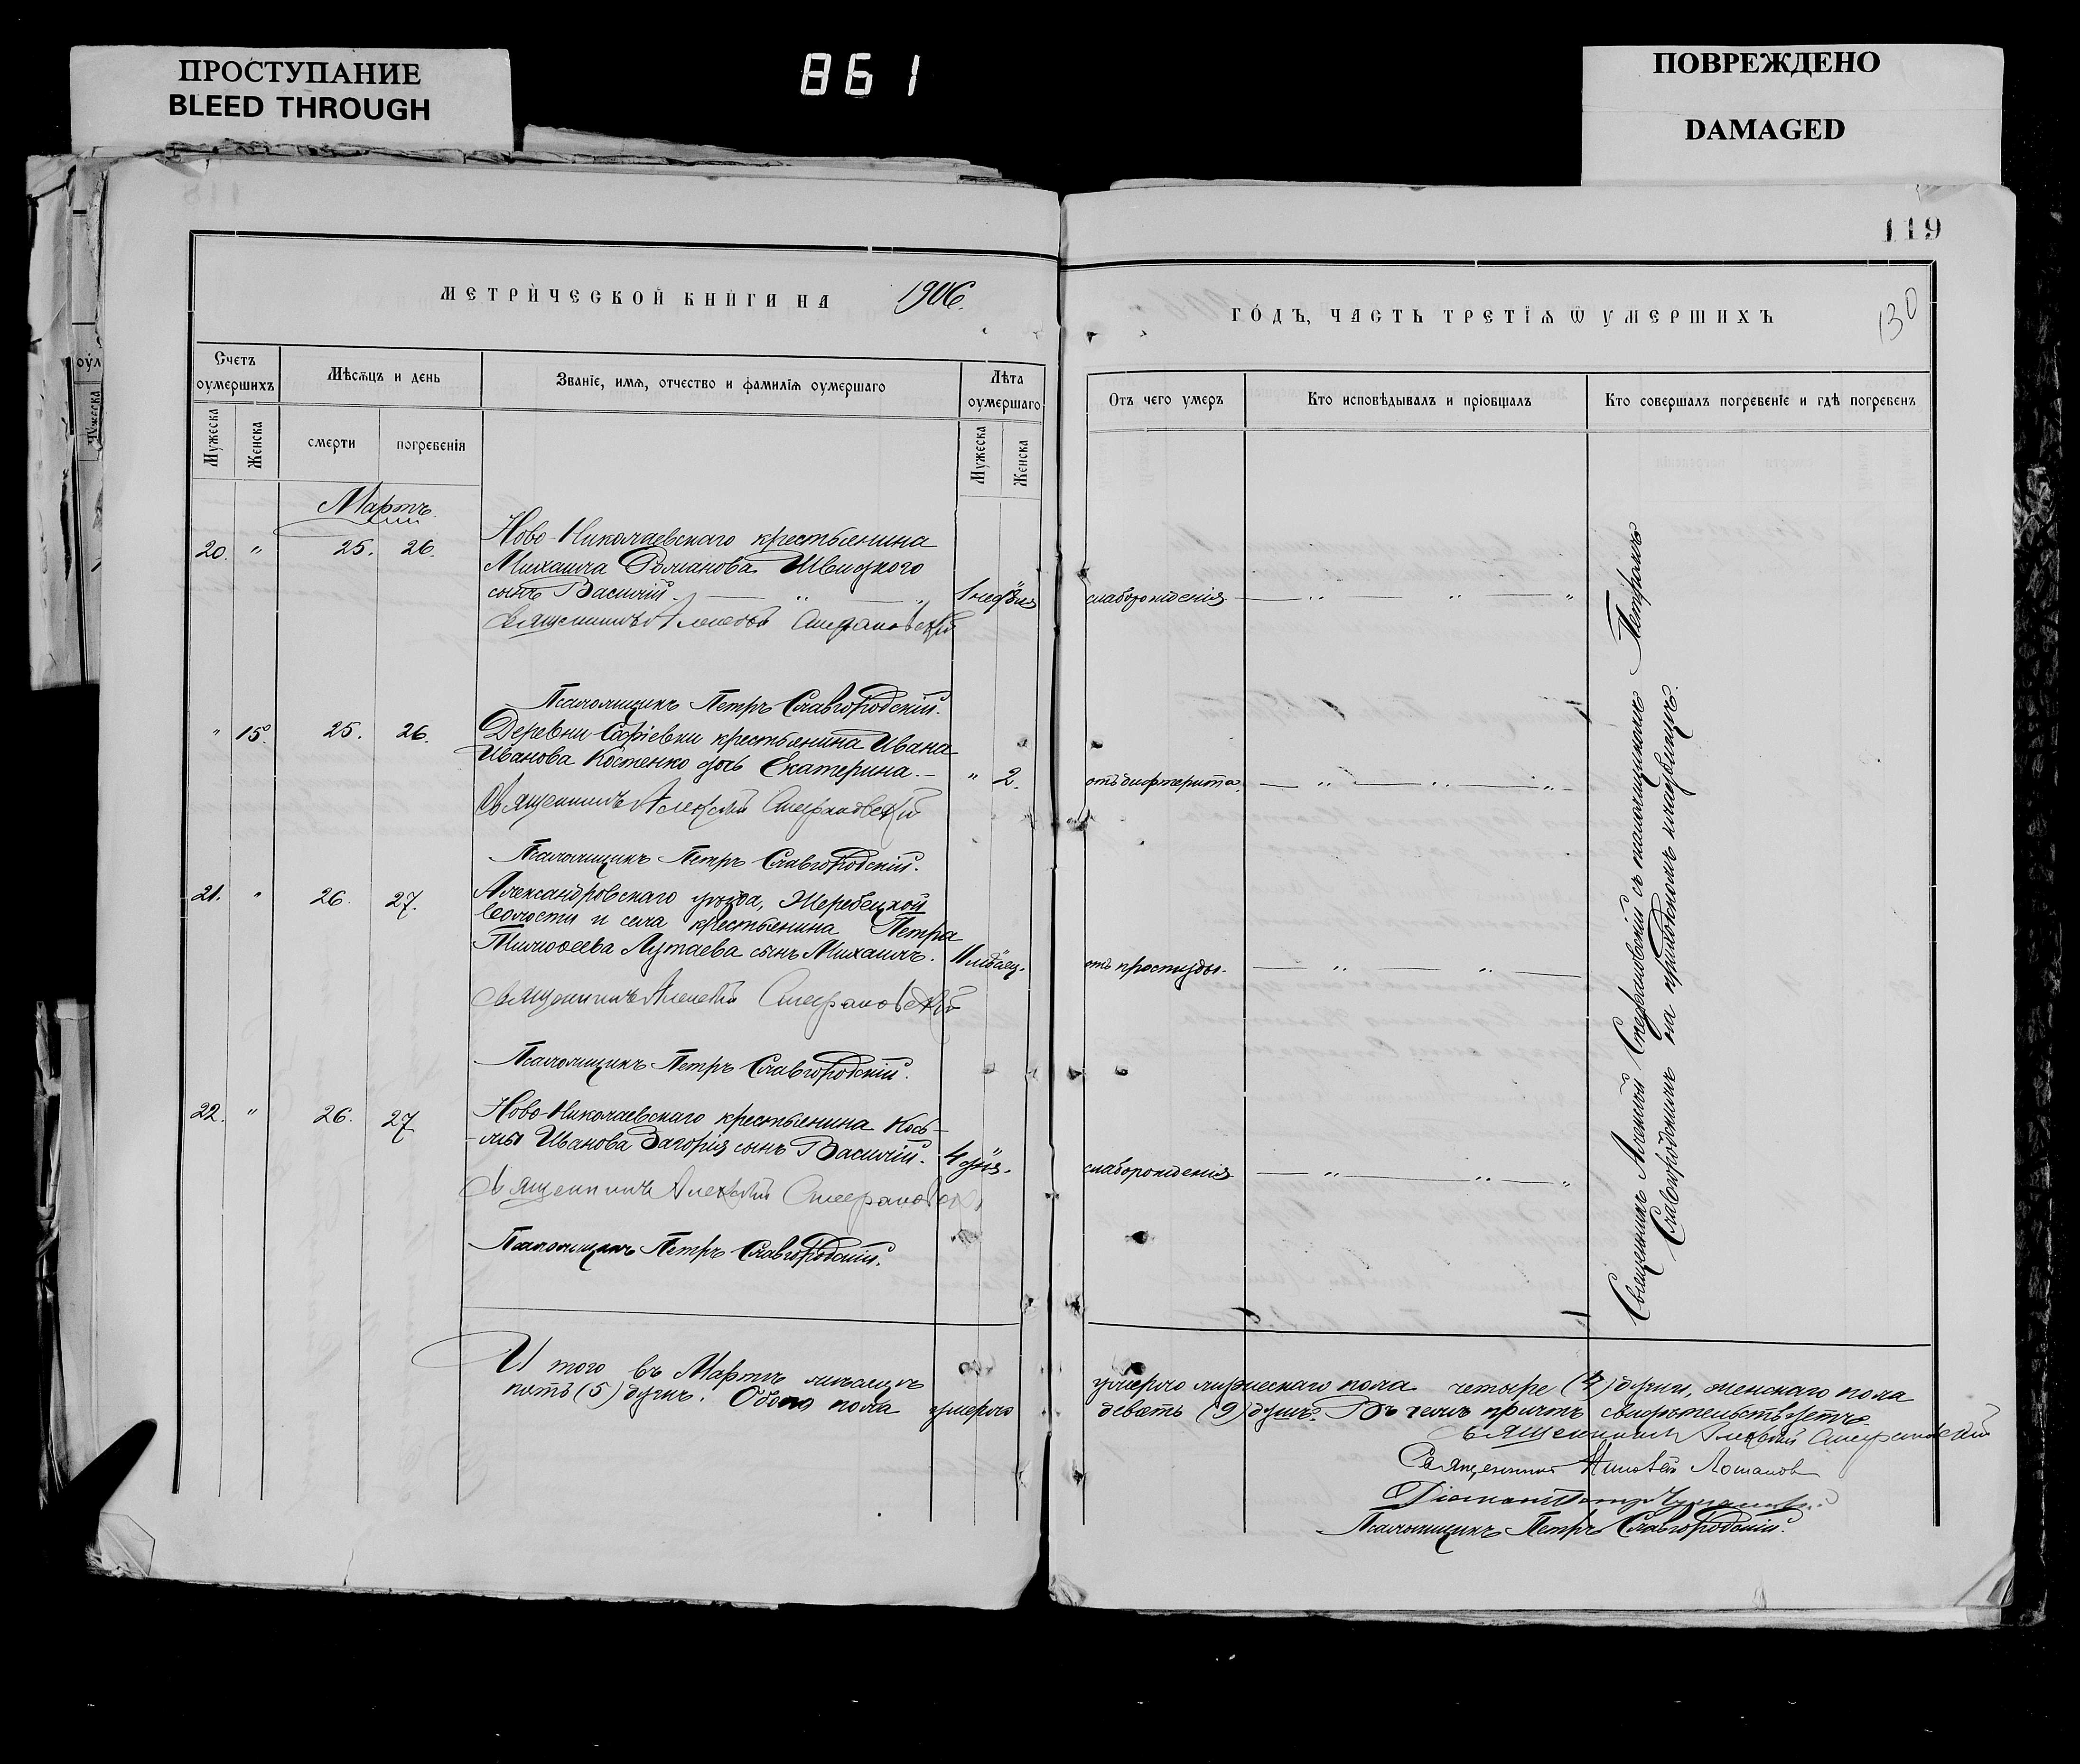 ПРОСТУПАНИЕ
BLEED THROUGH
861
ПОВРЕЖДЕНО
DAMAGED
119
130
МЕТРИЧЕСКОЙ КНИГИ НА 1906.
ГОДЪ, ЧАСТЬ ТРЕТІѦ Ѿ УМЕРШИХЪ
Счетъ оумершихъ
Мужеска
Женска
Мѣсѧцъ и день
смерти
погребенія
Званіе, имѧ, отчество и фамиліѧ оумершаго
Лѣта оумершаго
Мужеска
Женска
Отъ чего умеръ
Кто исповѣдывалъ и пріобщалъ
Кто совершалъ погребеніе и гдѣ погребенъ
Мартъ
20. " 25. 26.
Ново-Николаевскаго крестьянина
Михаила Романова Швидкого
сынъ Василій.
1 недѣля
слаборожденія
Священникъ Алексѣй Стефановскій
Псаломщикъ Петръ Славгородскій.
" 15. 25. 26.
Деревни Софіевки крестьянина Ивана
Иванова Костенко дочь Екатерина.
" 2.
отъ дифтерита
Священникъ Алексѣй Стефановскій
Псаломщикъ Петръ Славгородскій.
21. " 26. 27.
Александровскаго уѣзда, Жеребецкой
волости и села крестьянина Петра
Тимоѳеева Лутаева сынъ Михаилъ.
11 мѣсяц.
отъ простуды.
Священникъ Алексѣй Стефановскій
Псаломщикъ Петръ Славгородскій.
22. " 26. 27
Ново-Николаевскаго крестьянина Кось-
мы Иванова Загорія сынъ Василій.
4 дня.
слаборожденія
Священникъ Алексѣй Стефановскій
Псаломщикъ Петръ Славгородскій.
Священникъ Алексѣй Стефановскій съ псаломщикомъ Петромъ
Славгородскимъ на приходскомъ кладбищѣ.
Итого въ Мартѣ мѣсяцѣ умерло мужескаго пола четыре (4) души, женскаго пола
пять (5) душъ. Обоего пола умерло девять (9) душъ. Въ чемъ причтъ свидѣтельствуетъ.
Священникъ Алексѣй Стефановскій
Священникъ
Діаконъ Петръ
Псаломщикъ Петръ Славгородскій.